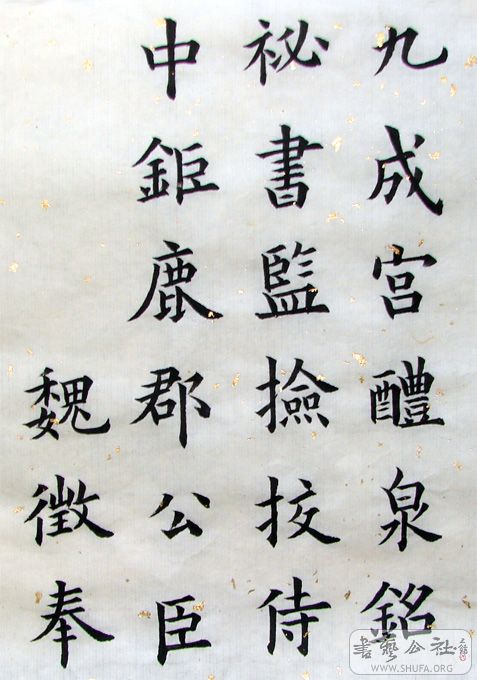 九成宫醴泉銘
祕書監撿挍侍
中鉅鹿郡公臣
魏徵奉
書藝公社
WWW.SHUFA.ORG